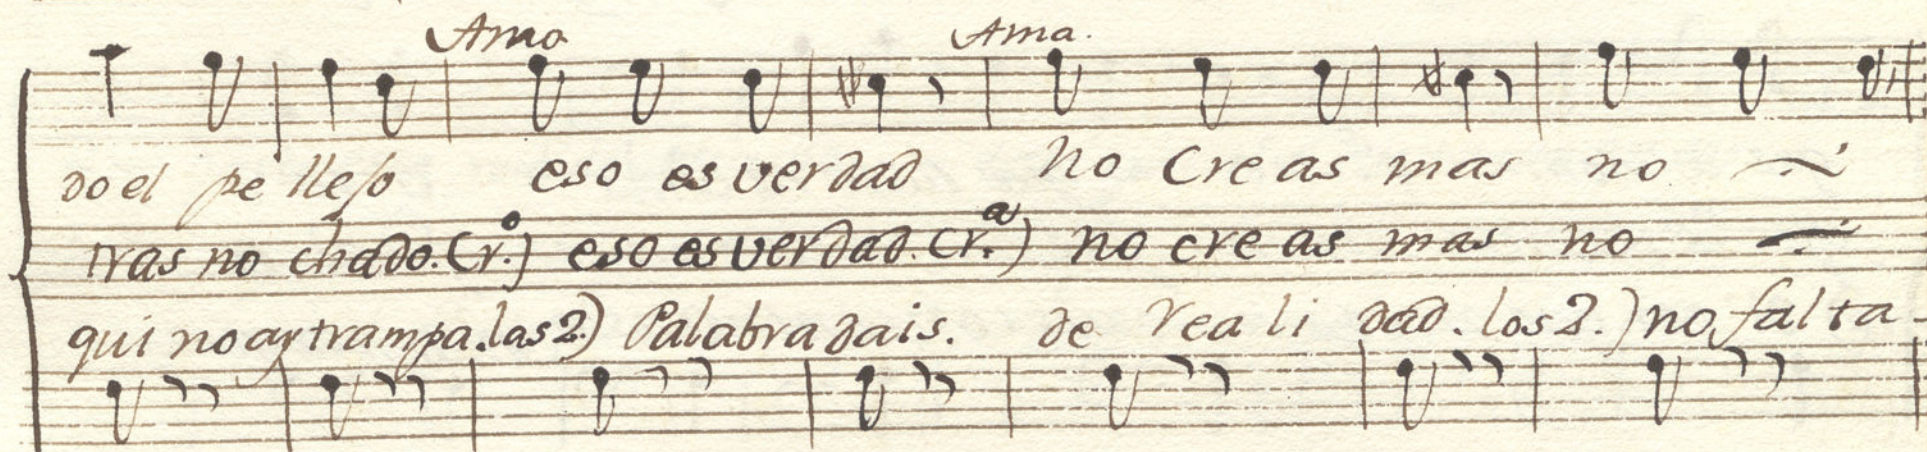 Amo Ama.
do el pe lleso eso es verdad no Creas mas no
tras no chado. (r.º) eso es verdad. (r.ª) no creas mas no
qui no ay trampa. las 2.) Palabra dais. de rea li dad. los 2.) no falta